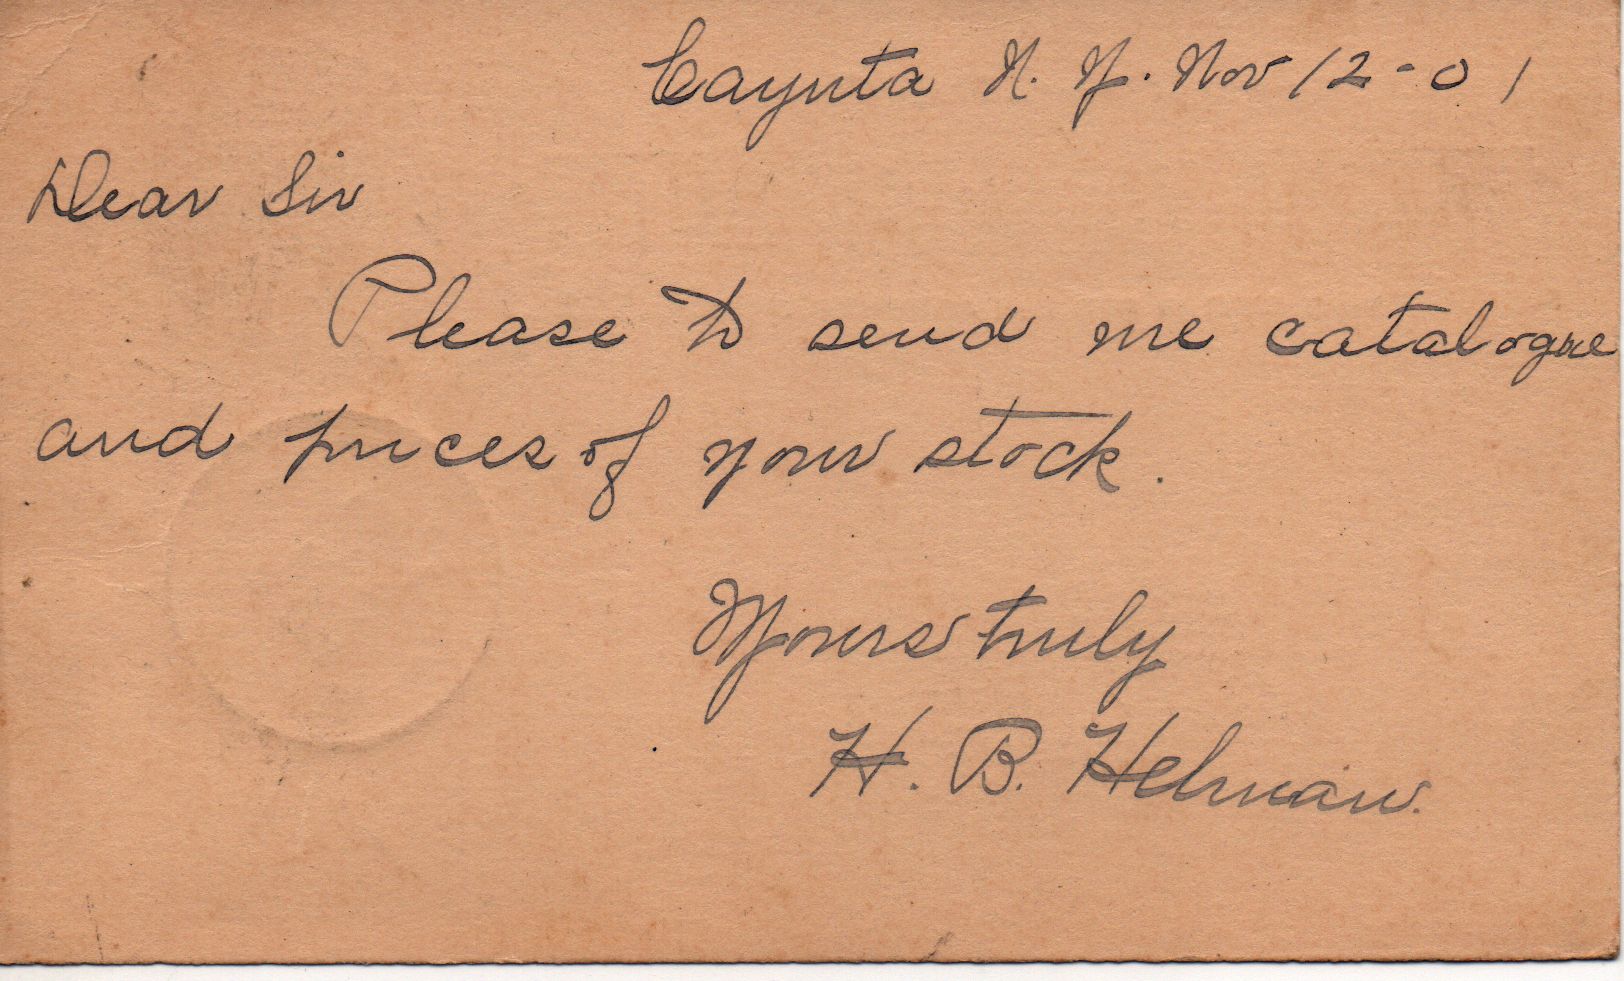 Cayuta N. Y. Nov 12-01
Dear Sir
Please to send me catalogue
and prices of your stock.
Yours truly
H. B. Helman.